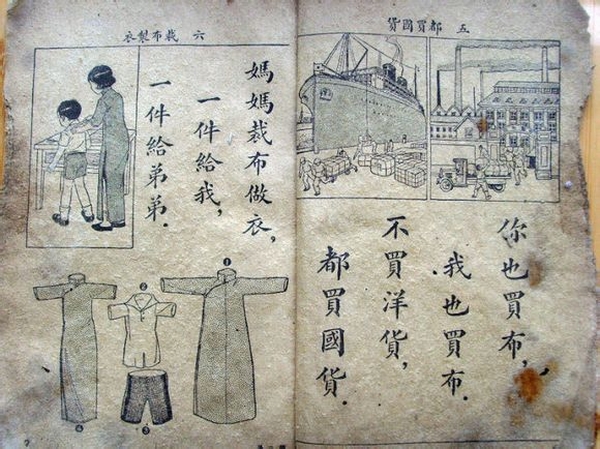 五 都買國貨
你也買布,
我也買布.
不買洋貨,
都買國貨.
六 裁布製衣
媽媽裁布做衣,
一件給我,
一件給弟弟.
❶
❷
❸
❹